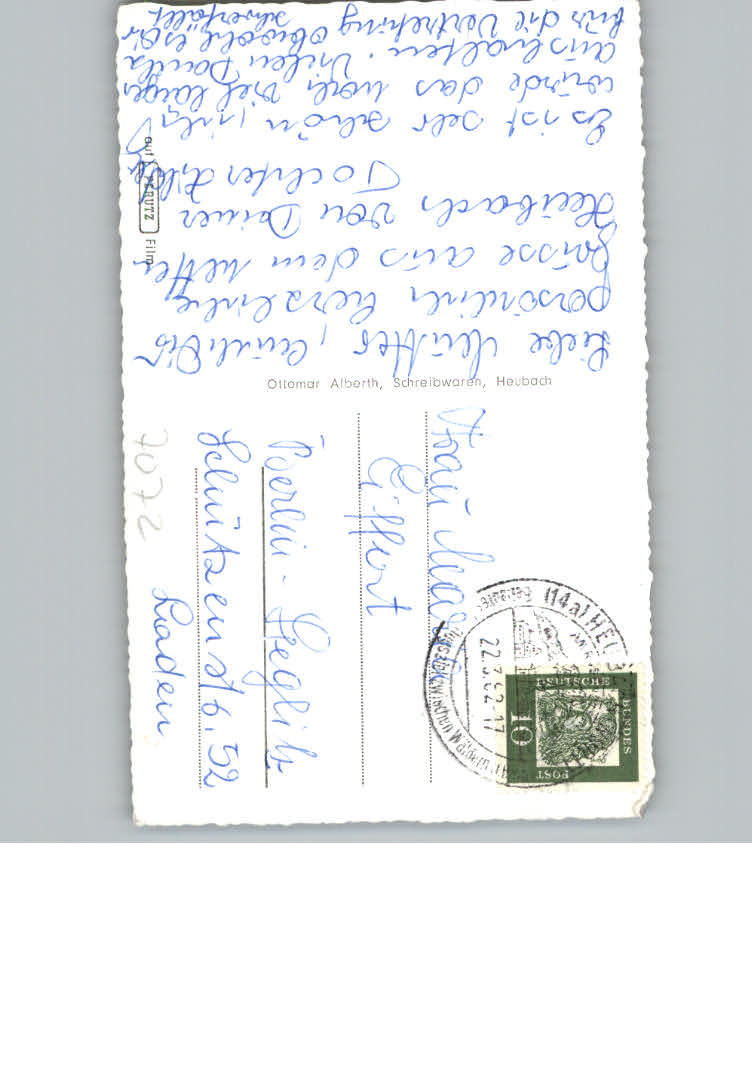 Liebe Mutter, Einen
persönlich herzliche
Grüsse aus dem netten
Heubach von Deiner
Tochter
Es ist sehr schön, ich
würde das noch viel länger
aushalten. Vielen Dank
für die Vertretung obwohl es Dir
schwerfällt
Ottomar Alberth, Schreibwaren, Heubach
auf PERUTZ Film
Frau
Eiffert
Berlin - Steglitz
Schützenstr. 52
Laden
7072
(14a) HEUBACH
22.3.62-17
DEUTSCHE
BUNDES
POST
10